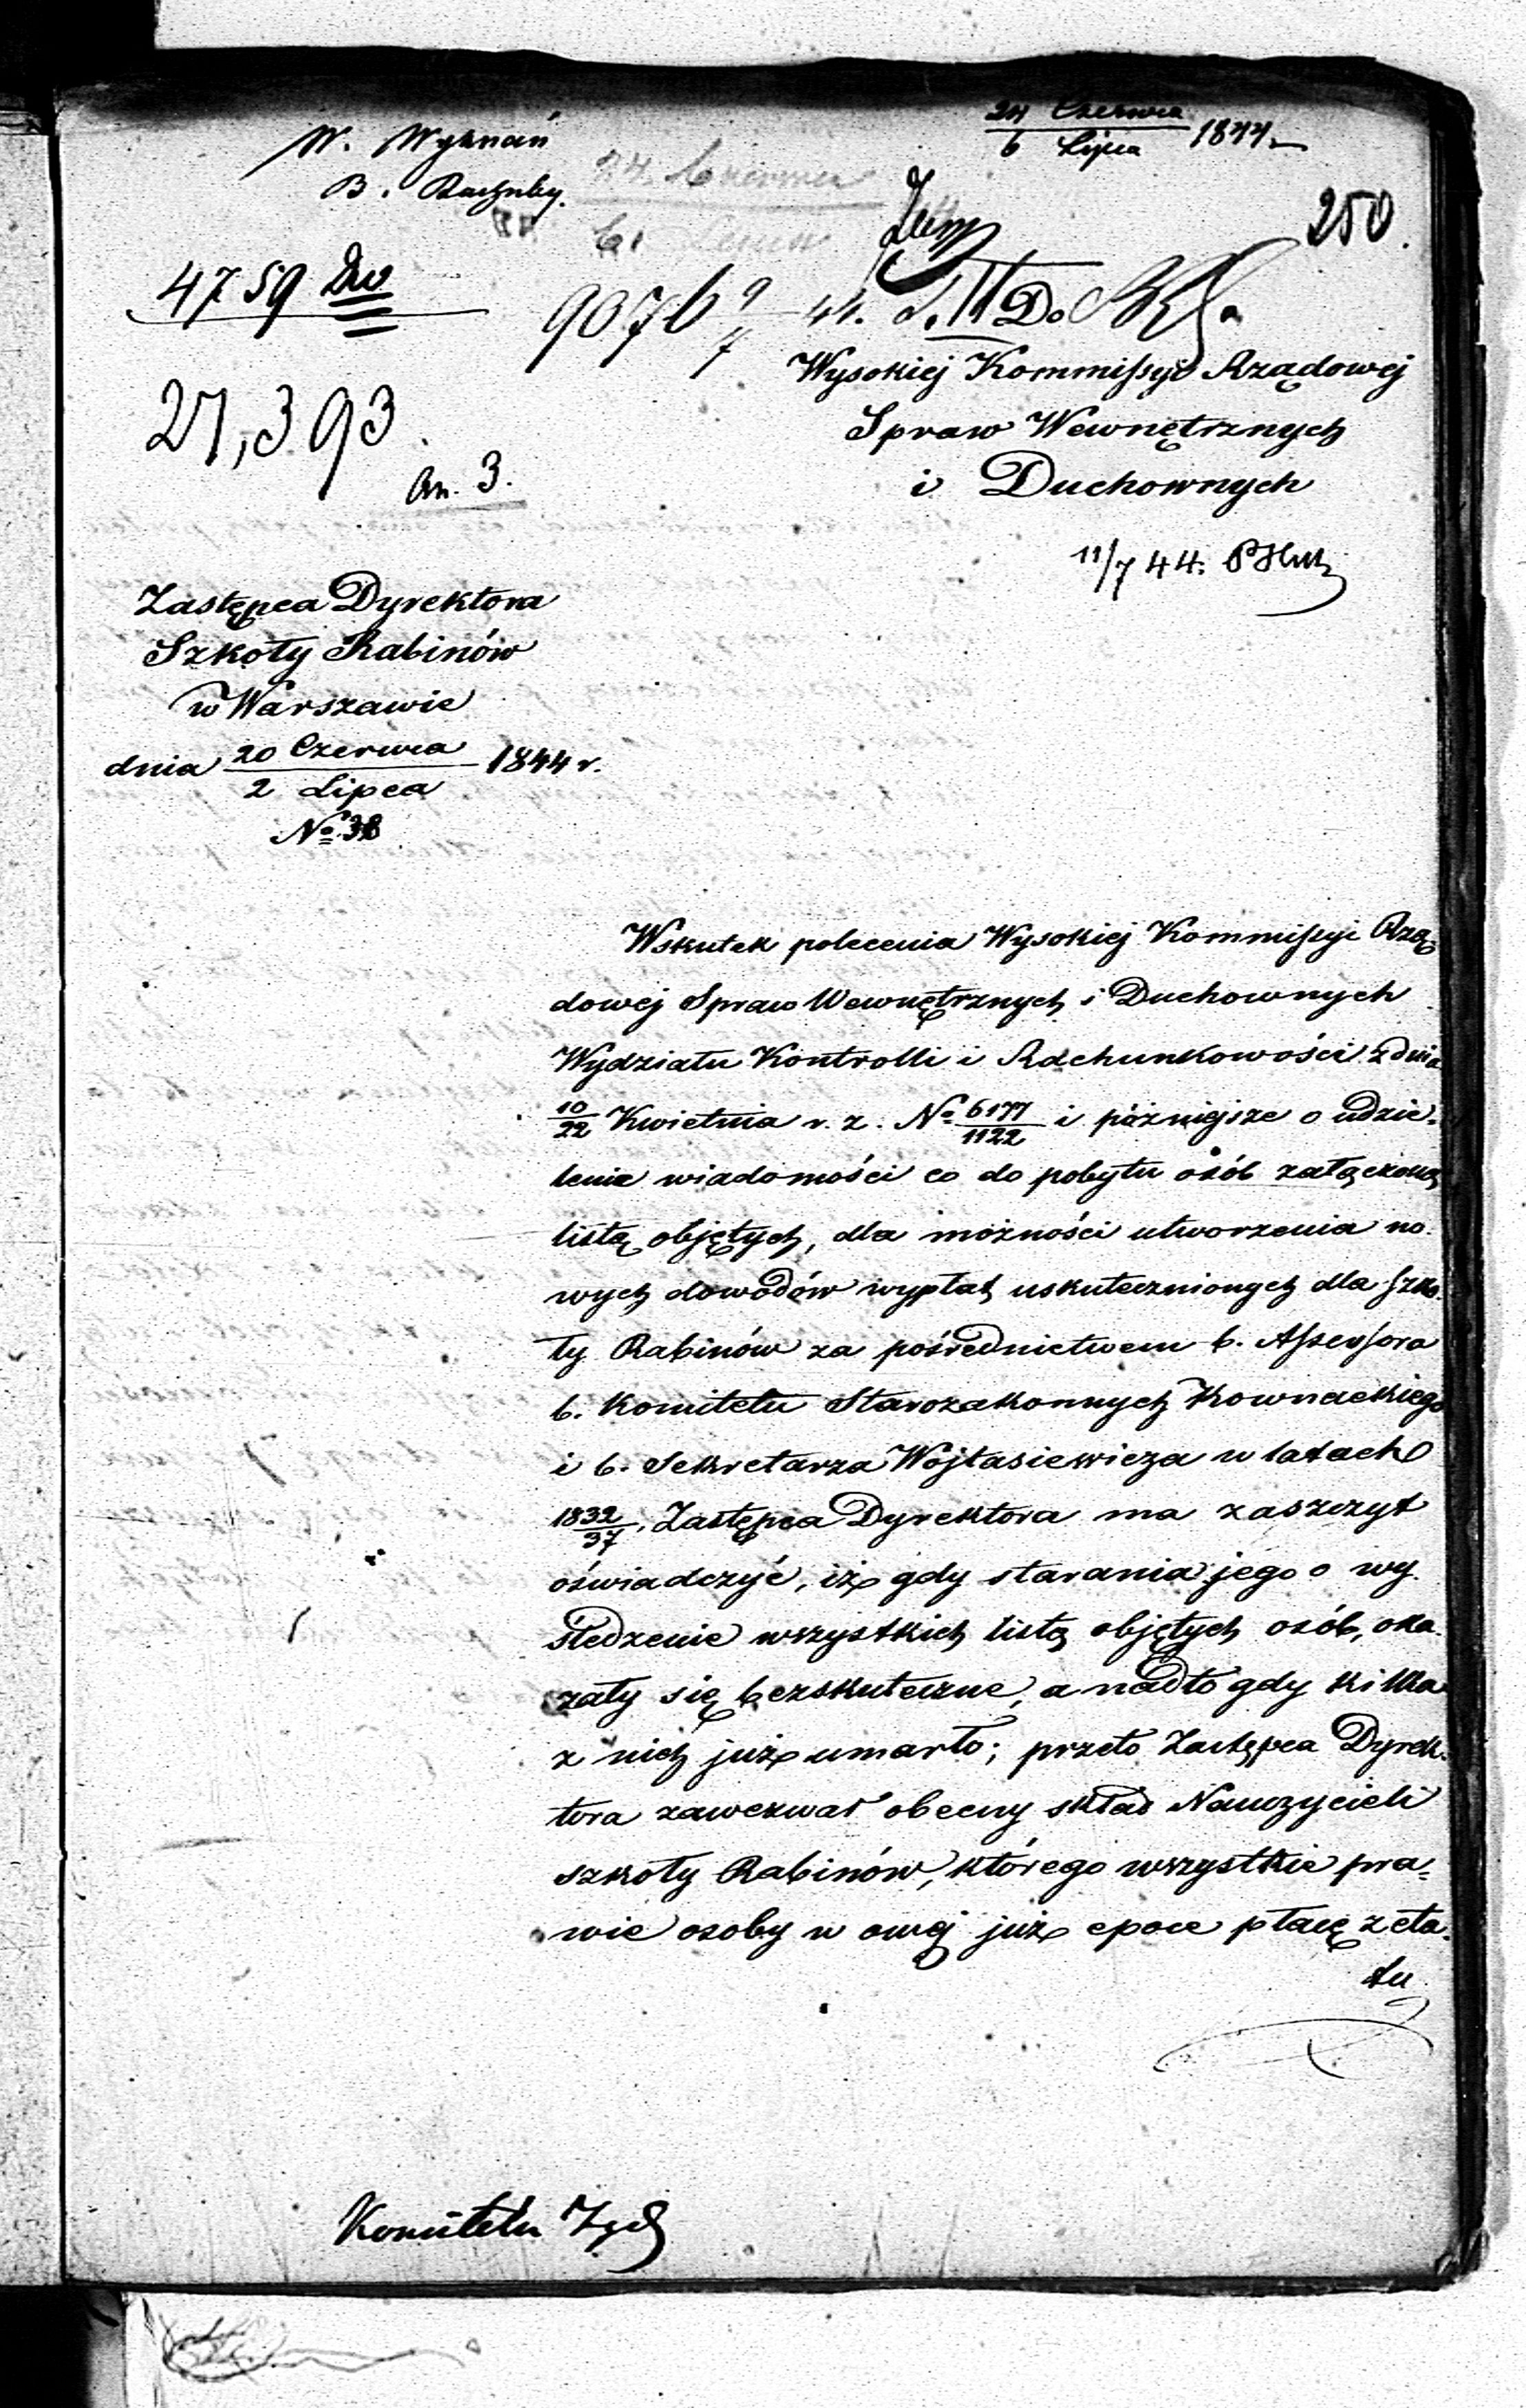 W. Wyznań
24 Czerwca
6 Lipca 1844
B. Rachuby.
24. Czerwca
6. Lipca
250.
4759
9076 9/7 44.
27,393.
An. 3.
Wysokiej Kommissyi Rządowej
Spraw Wewnętrznych
i Duchownych
11/7 44.
Zastępca Dyrektora
Szkoły Rabinów
w Warszawie
dnia 20 Czerwca / 2 Lipca 1844 r.
No. 38
Wskutek polecenia Wysokiej Kommissyi Rzą
dowej Spraw Wewnętrznych i Duchownych
Wydziału Kontrolli i Rachunkowości z dnia
10/22 Kwietnia r. z. No. 6177/1122 i późniejsze o udzie-
lenie wiadomości co do pobytu osób załączoną
listą objętych, dla możności utworzenia no-
wych dowodów wypłat uskutecznionych dla szko-
ły Rabinów za pośrednictwem b. Assessora
b. Komitetu Starozakonnych Kownackiego
i b. Sekretarza Wojtasiewicza w latach
1832/37, Zastępca Dyrektora ma zaszczyt
oświadczyć, iż gdy starania jego o wy-
śledzenie wszystkich listą objętych osób, oka-
zały się bezskuteczne, a nadto gdy kilka
z nich już umarło; przeto Zastępca Dyrek-
tora zawezwał obecny skład Nauczycieli
szkoły Rabinów, którego wszystkie pra-
wie osoby w owej już epoce płacę z eta-
tu
Komitetu Żyd